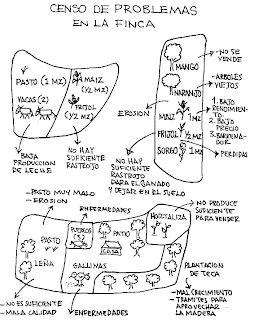 CENSO DE PROBLEMAS
EN LA FINCA
PASTO (1 MZ)
VACAS (2)
MAIZ
(½ MZ)
FRIJOL
(½ MZ)
BAJA
PRODUCCION
DE LECHE
NO HAY
SUFICIENTE
RASTROJO
MANGO
NARANJO
MAIZ 1 MZ
FRIJOL ½ MZ
SORGO 1 MZ
EROSION
NO SE
VENDE
ARBOLES
VIEJOS
1. BAJO
RENDIMIENTO
2. BAJO
PRECIO
3. BARRENADOR
PERDIDAS
NO HAY
SUFICIENTE
RASTROJO
PARA EL GANADO
Y DEJAR EN EL SUELO
- PASTO MUY MALO
- EROSION
ENFERMEDADES
PASTO
LEÑA
PUERCOS
PATIO
CASA
GALLINAS
HORTALIZA
NO PRODUCE
SUFICIENTE
PARA VENDER
PLANTACION
DE TECA
- NO ES SUFICIENTE
- MALA CALIDAD
ENFERMEDADES
- MAL CRECIMIENTO
- TRAMITES PARA
APROVECHAR LA
MADERA